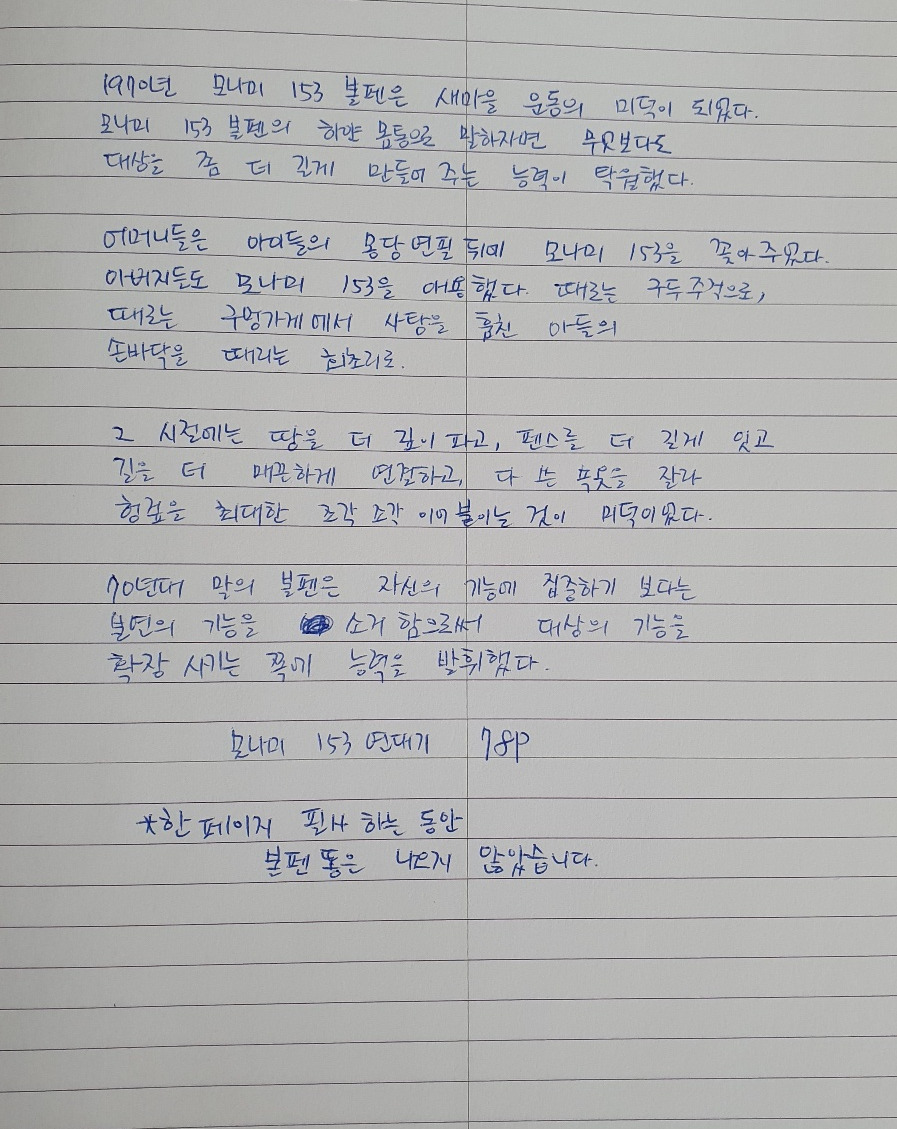 1970년 모나미 153 볼펜은 새마을 운동의 미덕이 되었다.
모나미 153 볼펜의 하얀 몸통으로 말하자면 무엇보다도
대상을 좀 더 길게 만들어 주는 능력이 탁월했다.
어머니들은 아이들의 몽당연필 뒤에 모나미 153을 꽂아주었다.
아버지들도 모나미 153을 애용했다. 때로는 구두주걱으로,
때로는 구멍가게에서 사탕을 훔친 아들의
손바닥을 때리는 회초리로.
그 시절에는 땅을 더 깊이 파고, 펜스를 더 길게 잇고
길을 더 매끈하게 연결하고, 다 쓴 폭옷을 잘라
헝겊은 최대한 조각 조각 이어 붙이는 것이 미덕이었다.
70년대 막의 볼펜은 자신의 기능에 집중하기 보다는
본연의 기능을 소거 함으로써 대상의 기능을
확장 시키는 쪽에 능력을 발휘했다.
모나미 153 연대기 78p
*한 페이지 필사 하는 동안
볼펜 똥은 나오지 않았습니다.